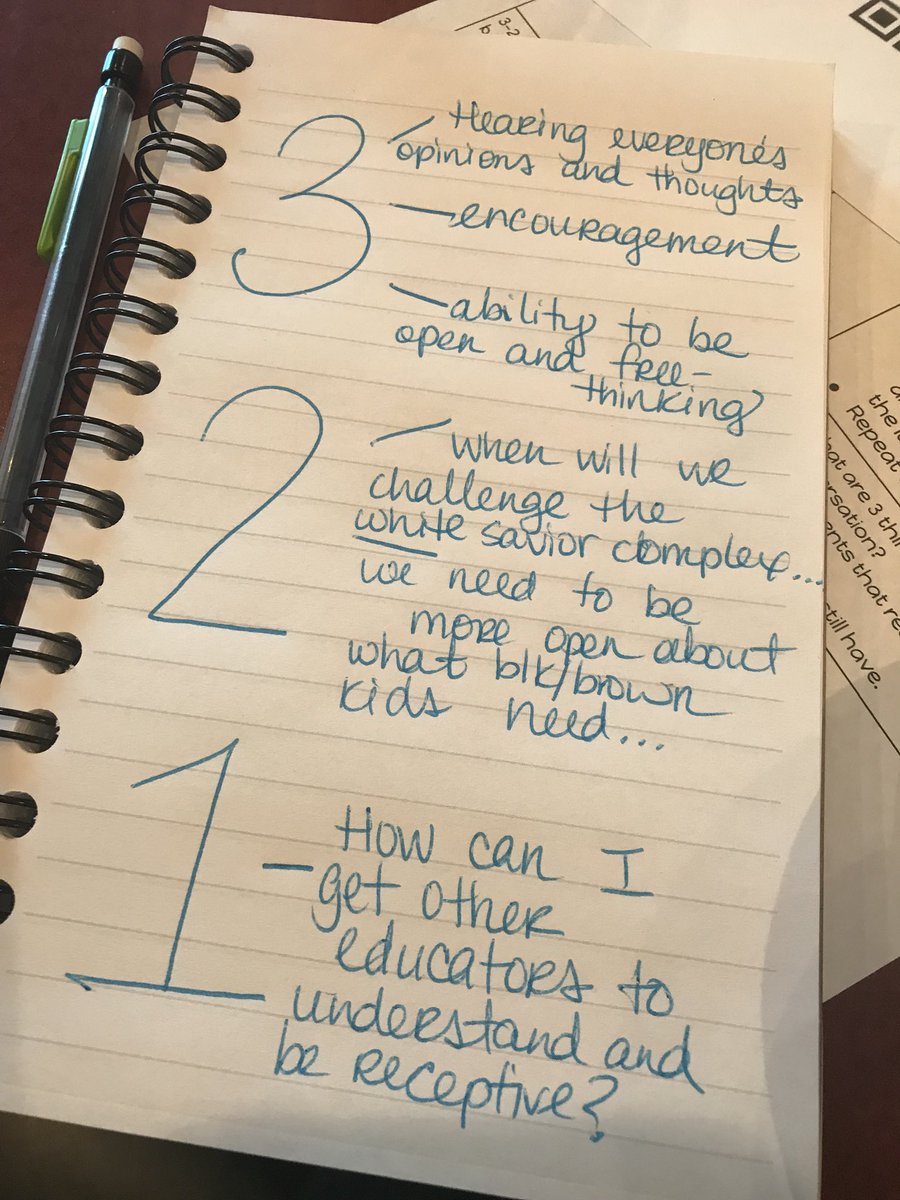 3
— Hearing everyone's
opinions and thoughts
— encouragement
— ability to be
open and free-
thinking
2
— when will we
challenge the
white savior complex...
we need to be
more open about
what blk/brown
kids need...
1
How can I
— get other
educators to
understand and
be receptive?
3-2
b
the
Repeat
hat are 3 thin
rsation?
ents that
still have.